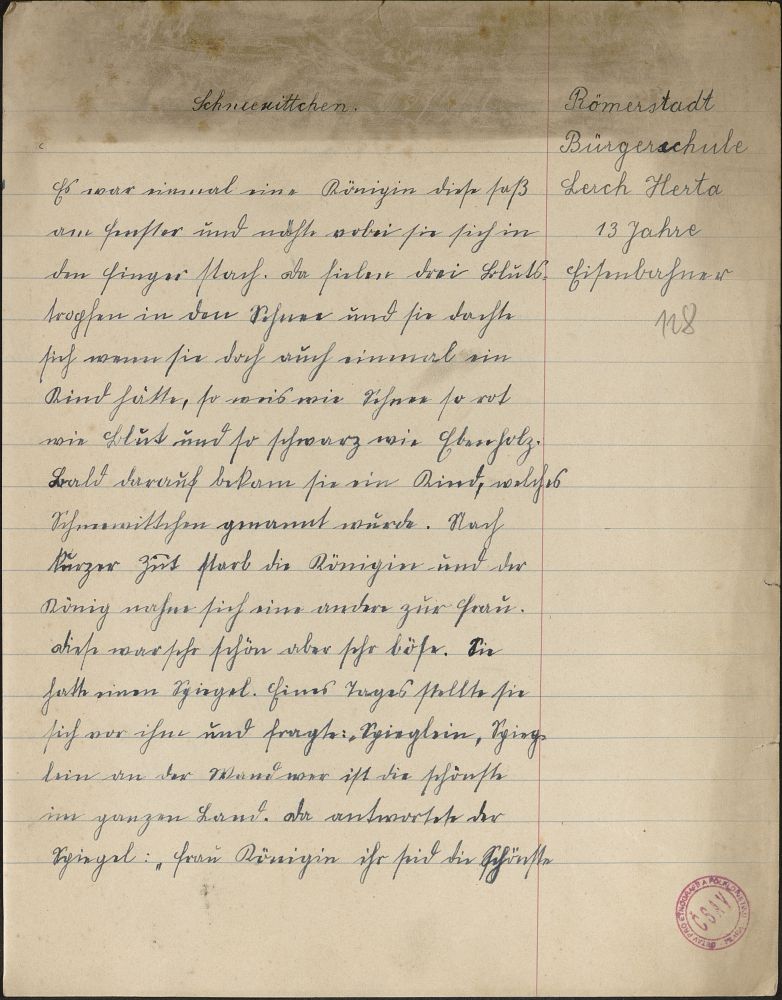 Schneewittchen.
Römerstadt
Bürgerschule
Lerch Herta
13 Jahre
Eisenbahner
118
Es war einmal eine Königin diese saß
am Fenster und nähte wobei sie sich in
den Finger stach. Da fielen drei Bluts-
tropfen in den Schnee und sie dachte
sich wenn sie doch auch einmal ein
Kind hätte, so weis wie Schnee so rot
wie Blut und so schwarz wie Ebenholz.
Bald darauf bekam sie ein Kind, welches
Schneewittchen genannt wurde. Nach
kurzer Zeit starb die Königin und der
König nahm sich eine andere zur Frau.
Diese war sehr schön aber sehr böse. Sie
hatte einen Spiegel. Eines Tages stellte sie
sich vor ihm und fragte: „Spieglein, Spieg-
lein an der Wand wer ist die schönste
im ganzen Land. Da antwortete der
Spiegel: „Frau Königin ihr seid die Schönste
ČSAV